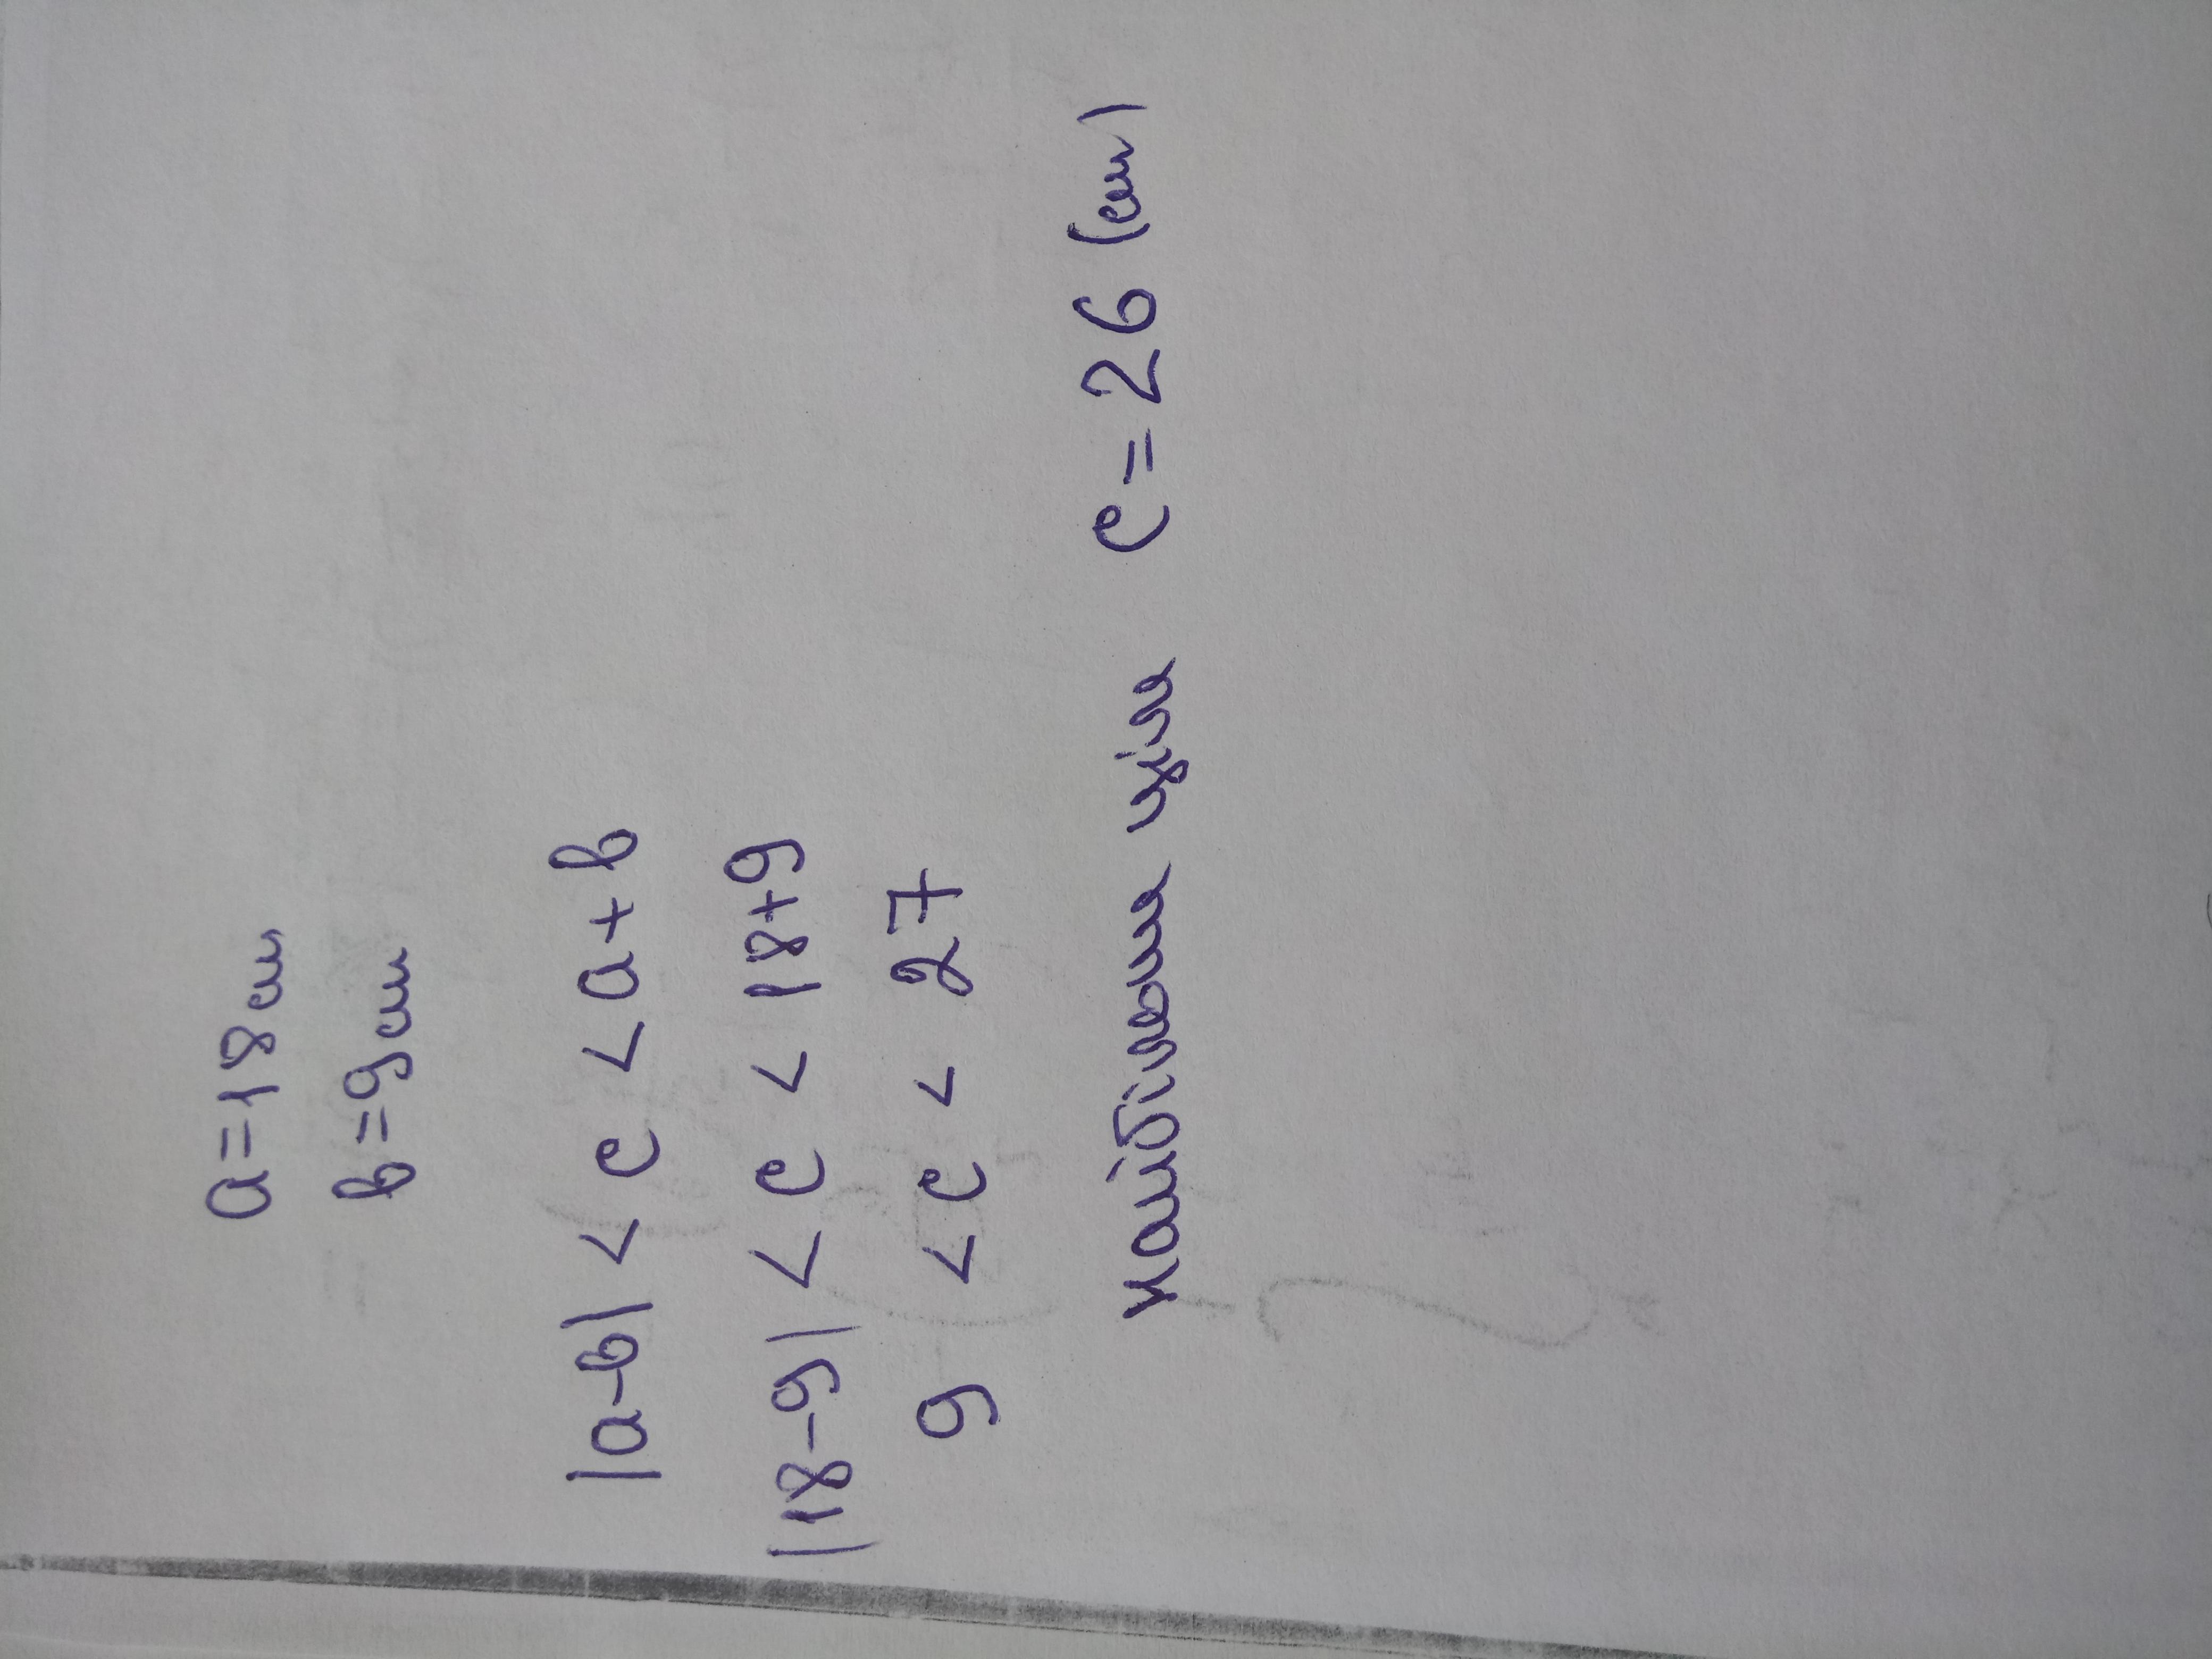 a=18см
b=9см
|a-b| < c < a+b
|18-9| < c < 18+9
9 < c < 27
найбільша ціла c=26 (см)